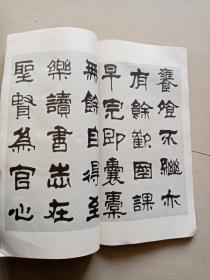 饔飧不繼亦
有餘歡國課
早完即囊橐
無餘自得至
樂讀書志在
聖賢為官心